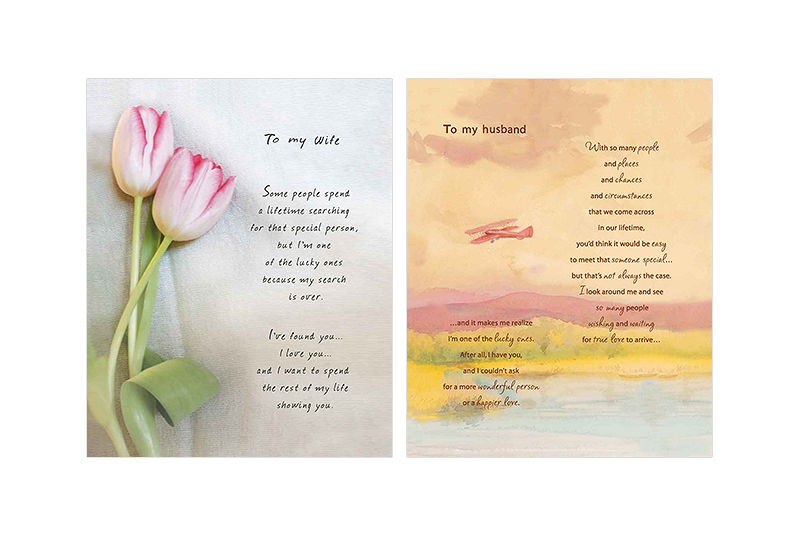 To my Wife
Some people spend
a lifetime searching
for that special person,
but I'm one
of the lucky ones
because my search
is over.
I've found you...
I love you...
and I want to spend
the rest of my life
showing you.
To my husband
With so many people
and places
and chances
and circumstances
that we come across
in our lifetime,
you'd think it would be easy
to meet that someone special...
but that's not always the case.
I look around me and see
so many people
wishing and waiting
for true love to arrive...
...and it makes me realize
I'm one of the lucky ones.
After all, I have you,
and I couldn't ask
for a more wonderful person
or a happier love.